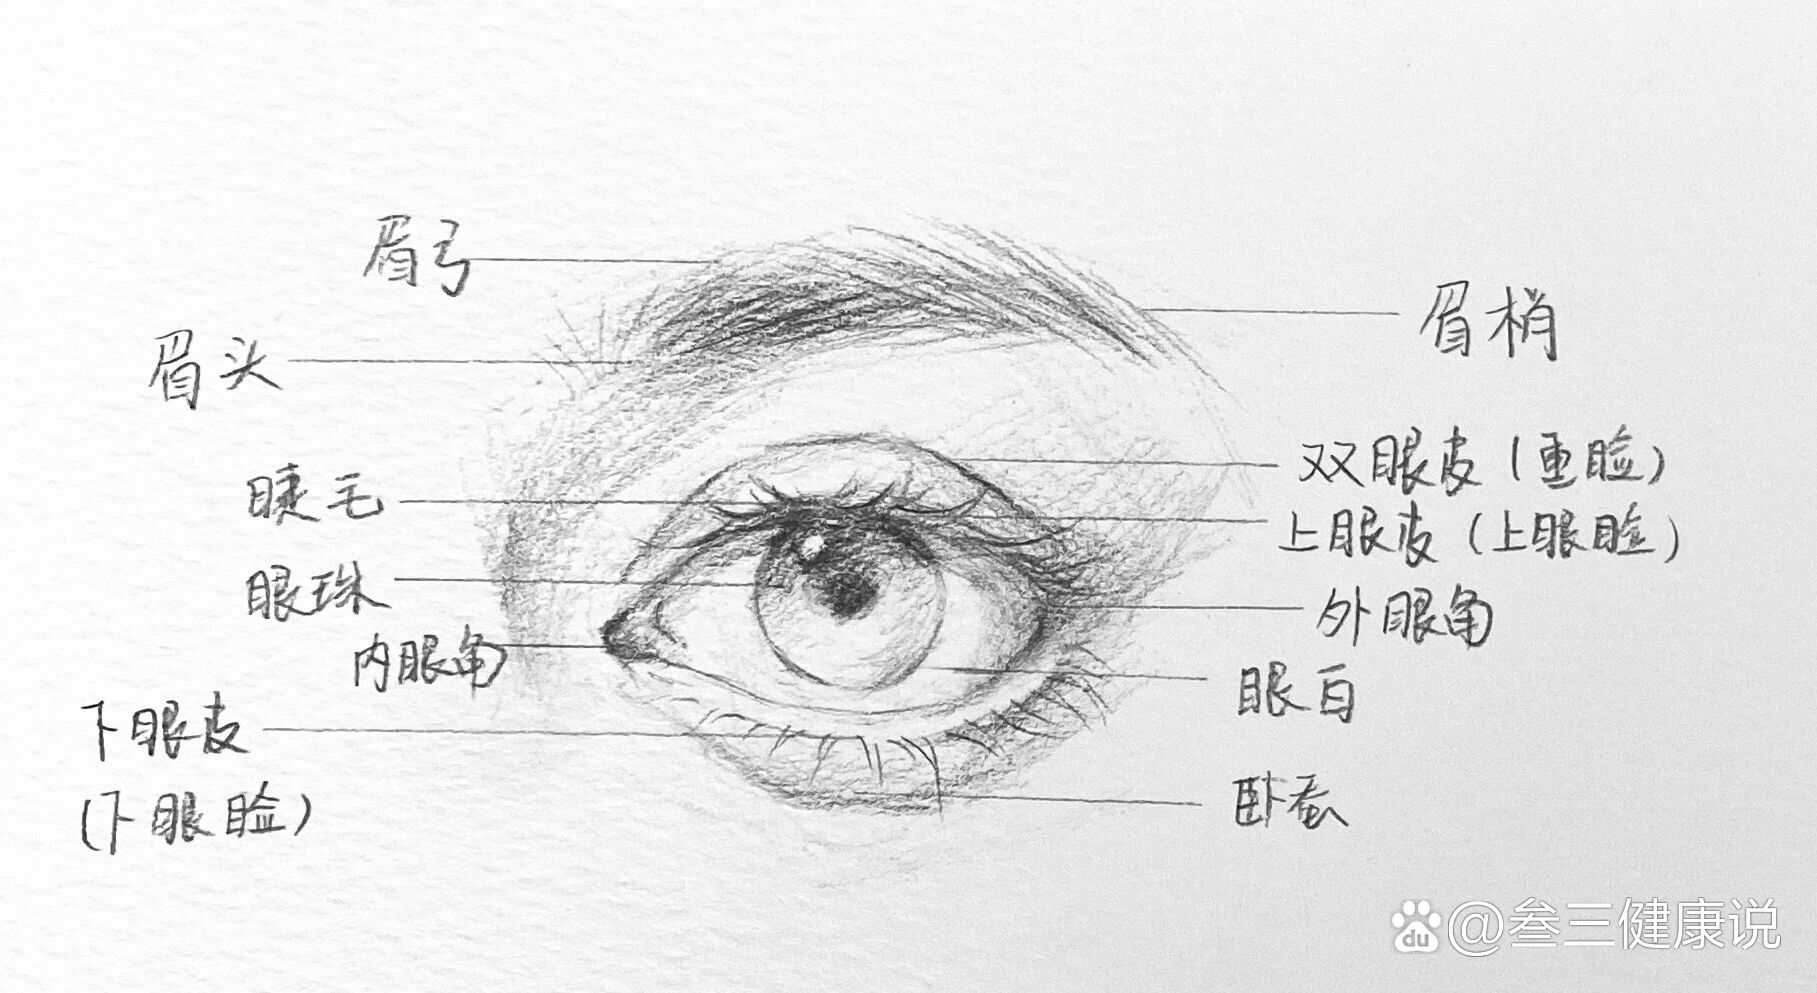 眉弓
眉头
睫毛
眼珠
内眼角
下眼皮
(下眼睑)
眉梢
双眼皮(重睑)
上眼皮(上眼睑)
外眼角
眼白
卧蚕
du @叁三健康说